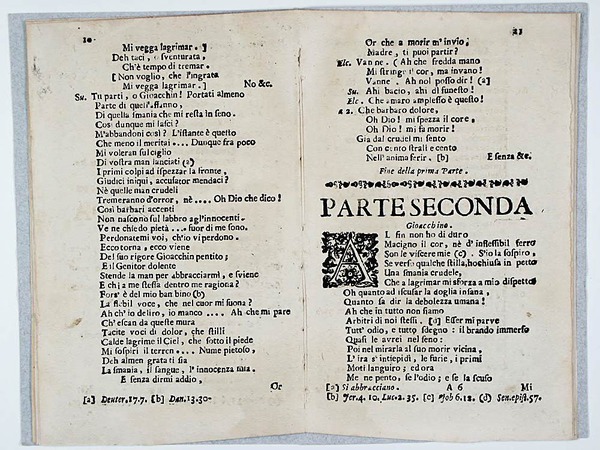 10
Mi vegga lagrimar. ]
Deh taci, o sventurata,
Ch'è tempo di tremar.
[ Non voglio, che l'ingrata
Mi vegga lagrimar. ] No &c.
Su. Tu parti, o Gioacchin! Portati almeno
Parte di quell'affanno,
Di quella smania che mi resta in seno.
Così dunque mi lasci?
M'abbandoni così? L'istante è questo
Che meno il meritai .... Dunque fra poco
Mi voleran sul ciglio
Di vostra man lanciati (a)
I primi colpi ad ispezzar la fronte,
Giudici iniqui, accusator mendaci?
Nè quelle man crudeli
Tremeranno d'orror, nè .... Oh Dio che dico!
Così barbari accenti
Non nascono sul labbro agl'innocenti.
Ve ne chiedo pietà ... fuor di me sono.
Perdonatemi voi, ch'io vi perdono.
Ecco torna, ecco viene
Del suo rigore Gioacchin pentito;
E il Genitor dolente
Stende la man per abbracciarmi, e sviene
E chi a me stessa dentro me ragiona?
Fors' è del mio ban bino (b)
La flebil voce, che nel cuor mi suona?
Ah ch'io deliro, io manco .... Ah che mi pare
Ch'escan da queste mura
Tacite voci di dolor, che stilli
Calde lagrime il Ciel, che sotto il piede
Mi sospiri il terren .... Nume pietoso,
Deh almen grata ti sia
La smania, il sangue, l'innocenza mia.
E senza dirmi addio,
Or
[a] Deuter. 17.7. [b] Dan. 13.30.
Or che a morir m'invio,
Madre, ti puoi partir?
Elc. Vanne. ( Ah che fredda mano
Mi stringe il cor, ma invano!
Vanne. Ah nol posso dir! (a)
Su. Ahi bacio, ahi sì funesto!
Elc. Che amaro amplesso è questo!
a 2. Che barbaro dolore,
Oh Dio! mi spezza il core,
Oh Dio! mi fa morir!
Già dal crudel mi sento
Con cento strali e cento
Nell'anima ferir. [b] E senza &c.
Fine della prima Parte.
PARTE SECONDA
Gioacchino.
AL fin non ho di duro
Macigno il cor, nè d'inflessibil ferro
Son le viscere mie (c) . S'io la sospiro,
Se verso qualche stilla, ho chiusa in petto
Una smania crudele,
Che a lagrimar mi sforza a mio dispetto
Oh quanto ad iscusar la doglia insana,
Quanto fa dir la debolezza umana!
Ah che in tutto non siamo
Arbitri di noi stessi. [d] Esser mi parve
Tutt' odio, e tutto sdegno: il brando immerso
Quasi le avrei nel seno:
Poi nel mirarla al suo morir vicina,
L'ira s'intiepidì, le furie, i primi
Moti languiro; ed ora
Me ne pento, se l'odio; e se la scuso
[a] Si abbracciano. A 6 Mi
[b] Jer. 4. 10. Luc. 2. 35. [c] Job 6. 12. (d) Sen. epist. 57.